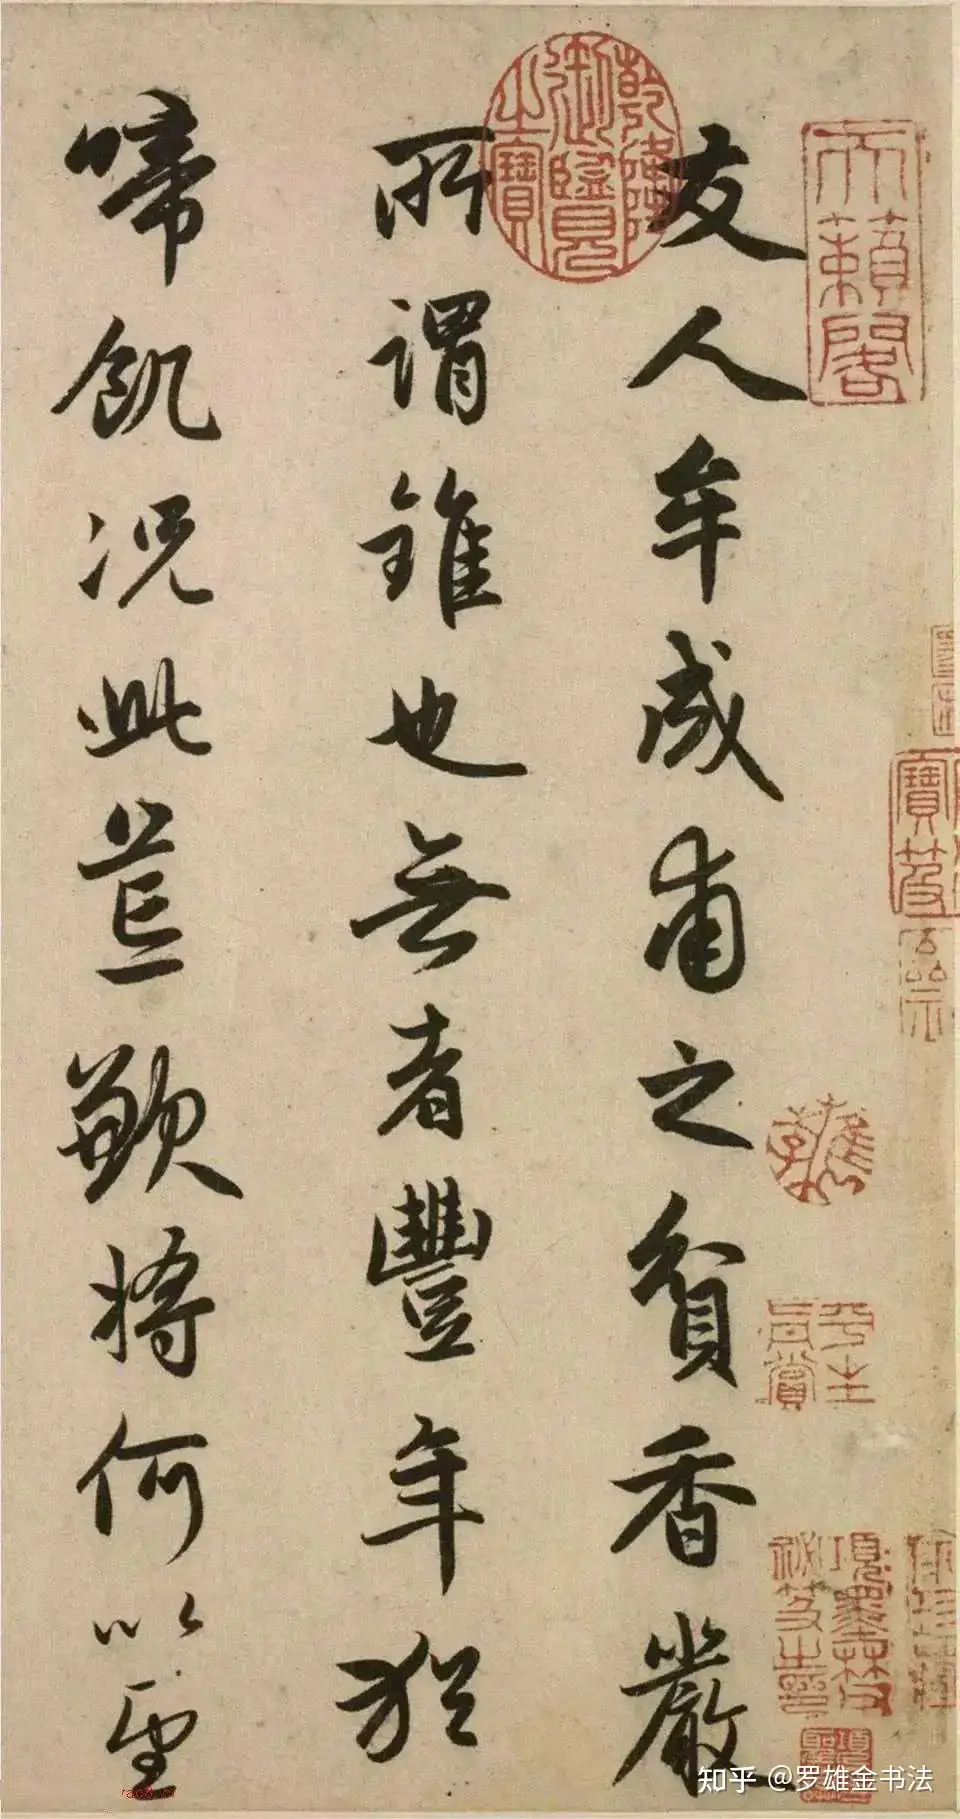 友人牟成甫之貧香嚴
所謂錐也無者豐年猶
啼飢況此荒歉將何以望
乾隆御覽之寶
天籟閣
平生真賞
項墨林父祕笈之印
知乎 @罗雄金书法